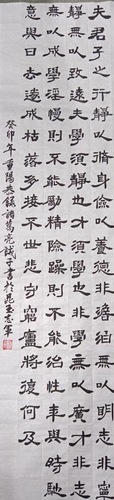 夫君子之行靜以脩身儉以養德非澹泊無以明志非寧
靜無以致遠夫學須靜也才須學也非學無以廣才非志
無以成學淫慢則不能勵精險躁則不能治性年與時馳
意與日去遂成枯落多接不世悲守窮廬將復何及
癸卯年重陽恭錄諸葛亮誡子書於